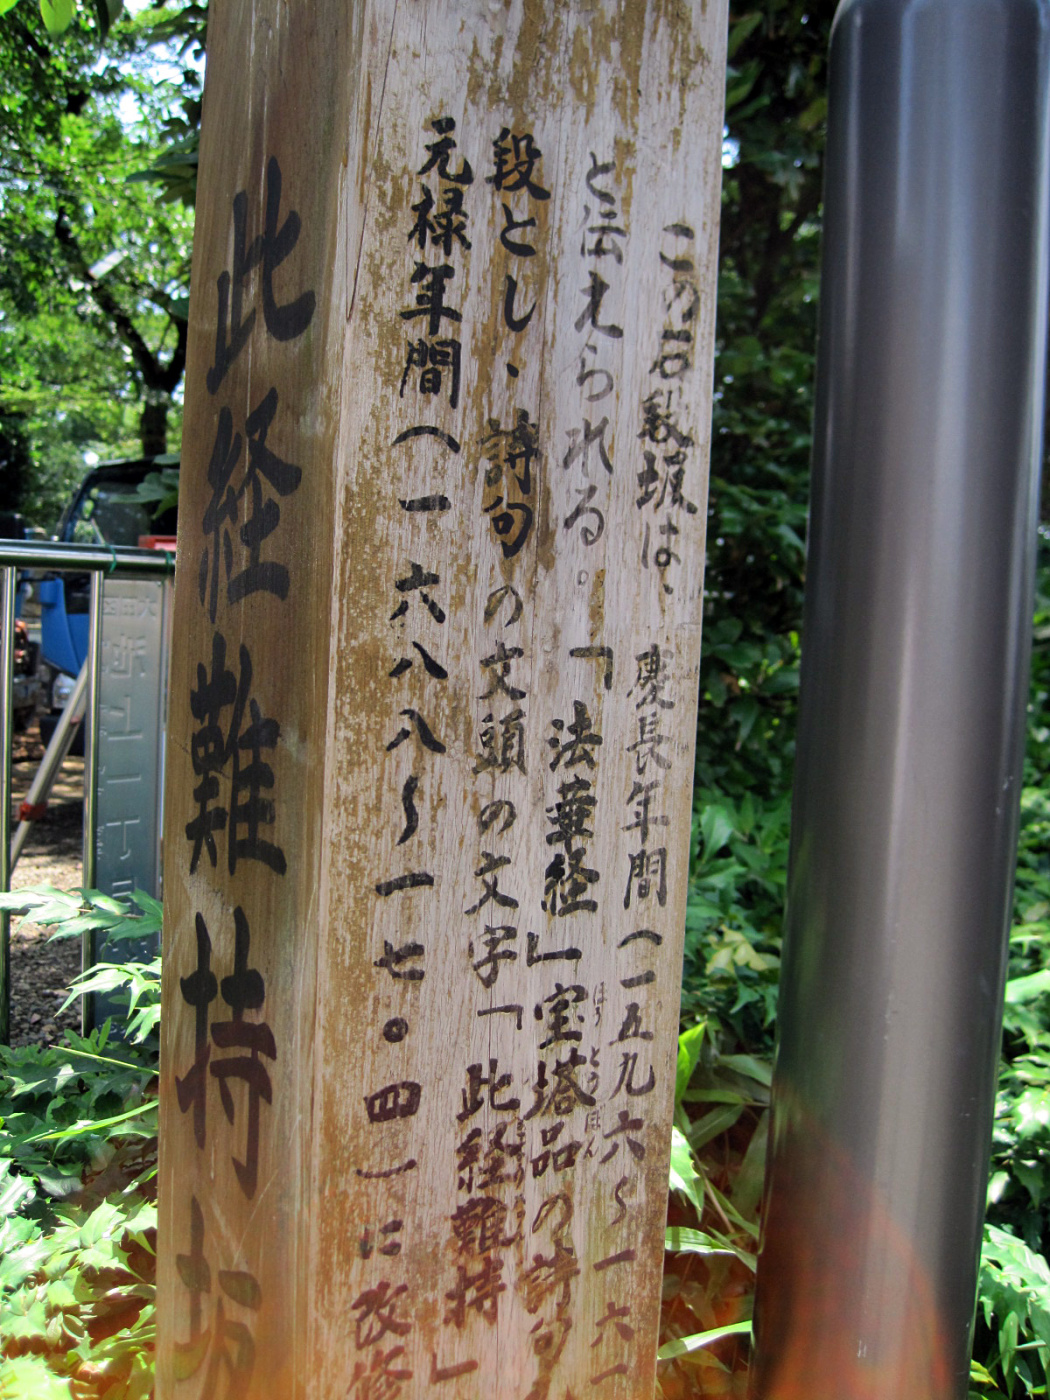 この石段坂は、慶長年間（一五九六〜一六一
と伝えられる。「法華経」宝塔品の詩句
段とし、詩句の文頭の文字「此経難持」
元禄年間（一六八八〜一七〇四）に改修
此経難持坂